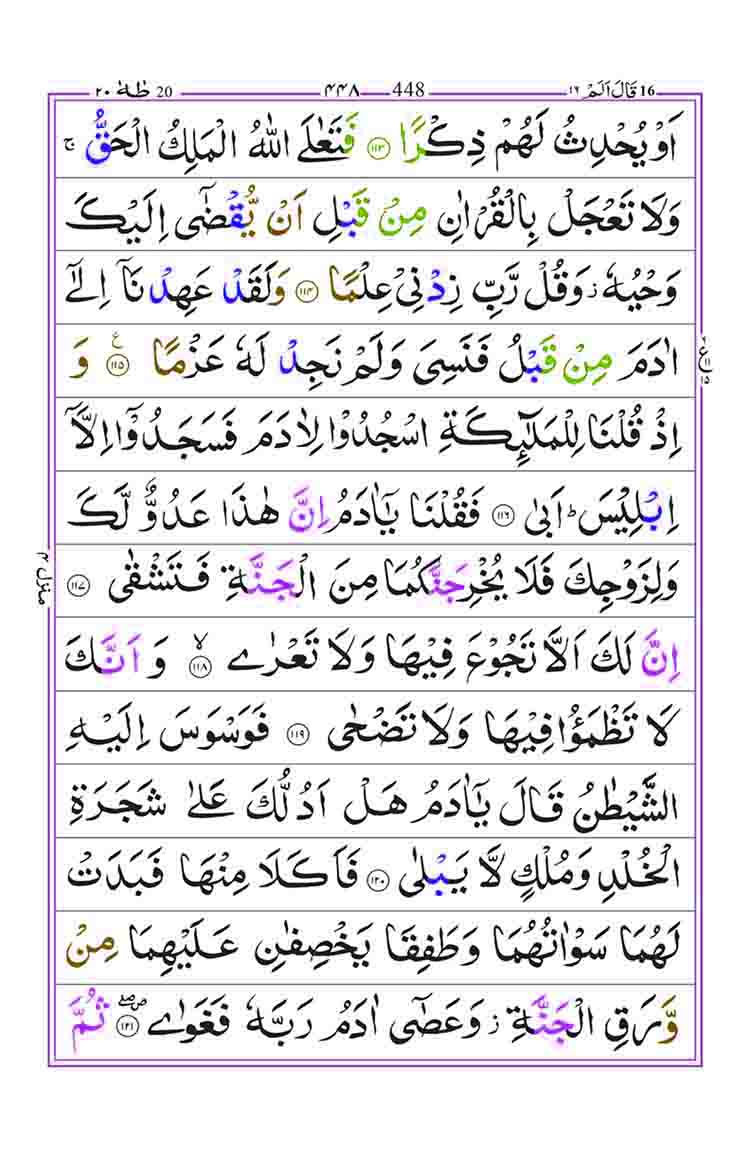 20 طٰهٰ ٢٠ 448 ۴۴۸ 16 قَالَ اَلَمْ ١٦
اَوْ يُحْدِثُ لَهُمْ ذِكْرًا ﴿۱۱۳﴾ فَتَعٰلَى اللّٰهُ الْمَلِكُ الْحَقُّ ۚ
وَلَا تَعْجَلْ بِالْقُرْاٰنِ مِنْ قَبْلِ اَنْ يُّقْضٰٓى اِلَيْكَ
وَحْيُهٗ ؗ وَقُلْ رَّبِّ زِدْنِيْ عِلْمًا ﴿۱۱۴﴾ وَلَقَدْ عَهِدْنَاۤ اِلٰٓى
اٰدَمَ مِنْ قَبْلُ فَنَسِيَ وَلَمْ نَجِدْ لَهٗ عَزْمًا ﴿۱۱۵﴾ وَ
اِذْ قُلْنَا لِلْمَلٰٓئِكَةِ اسْجُدُوْا لِاٰدَمَ فَسَجَدُوْۤا اِلَّاۤ
اِبْلِيْسَ ؕ اَبٰى ﴿۱۱۶﴾ فَقُلْنَا يٰۤاٰدَمُ اِنَّ هٰذَا عَدُوٌّ لَّكَ
وَلِزَوْجِكَ فَلَا يُخْرِجَنَّكُمَا مِنَ الْجَنَّةِ فَتَشْقٰى ﴿۱۱۷﴾
اِنَّ لَكَ اَلَّا تَجُوْعَ فِيْهَا وَلَا تَعْرٰى ﴿۱۱۸﴾ۙ وَ اَنَّكَ
لَا تَظْمَؤُا فِيْهَا وَلَا تَضْحٰى ﴿۱۱۹﴾ فَوَسْوَسَ اِلَيْهِ
الشَّيْطٰنُ قَالَ يٰۤاٰدَمُ هَلْ اَدُلُّكَ عَلٰى شَجَرَةِ
الْخُلْدِ وَمُلْكٍ لَّا يَبْلٰى ﴿۱۲۰﴾ فَاَكَلَا مِنْهَا فَبَدَتْ
لَهُمَا سَوْاٰتُهُمَا وَطَفِقَا يَخْصِفٰنِ عَلَيْهِمَا مِنْ
وَّرَقِ الْجَنَّةِ ؗ وَعَصٰٓى اٰدَمُ رَبَّهٗ فَغَوٰى ﴿۱۲۱﴾ۖۗ ثُمَّ
منزل ۴